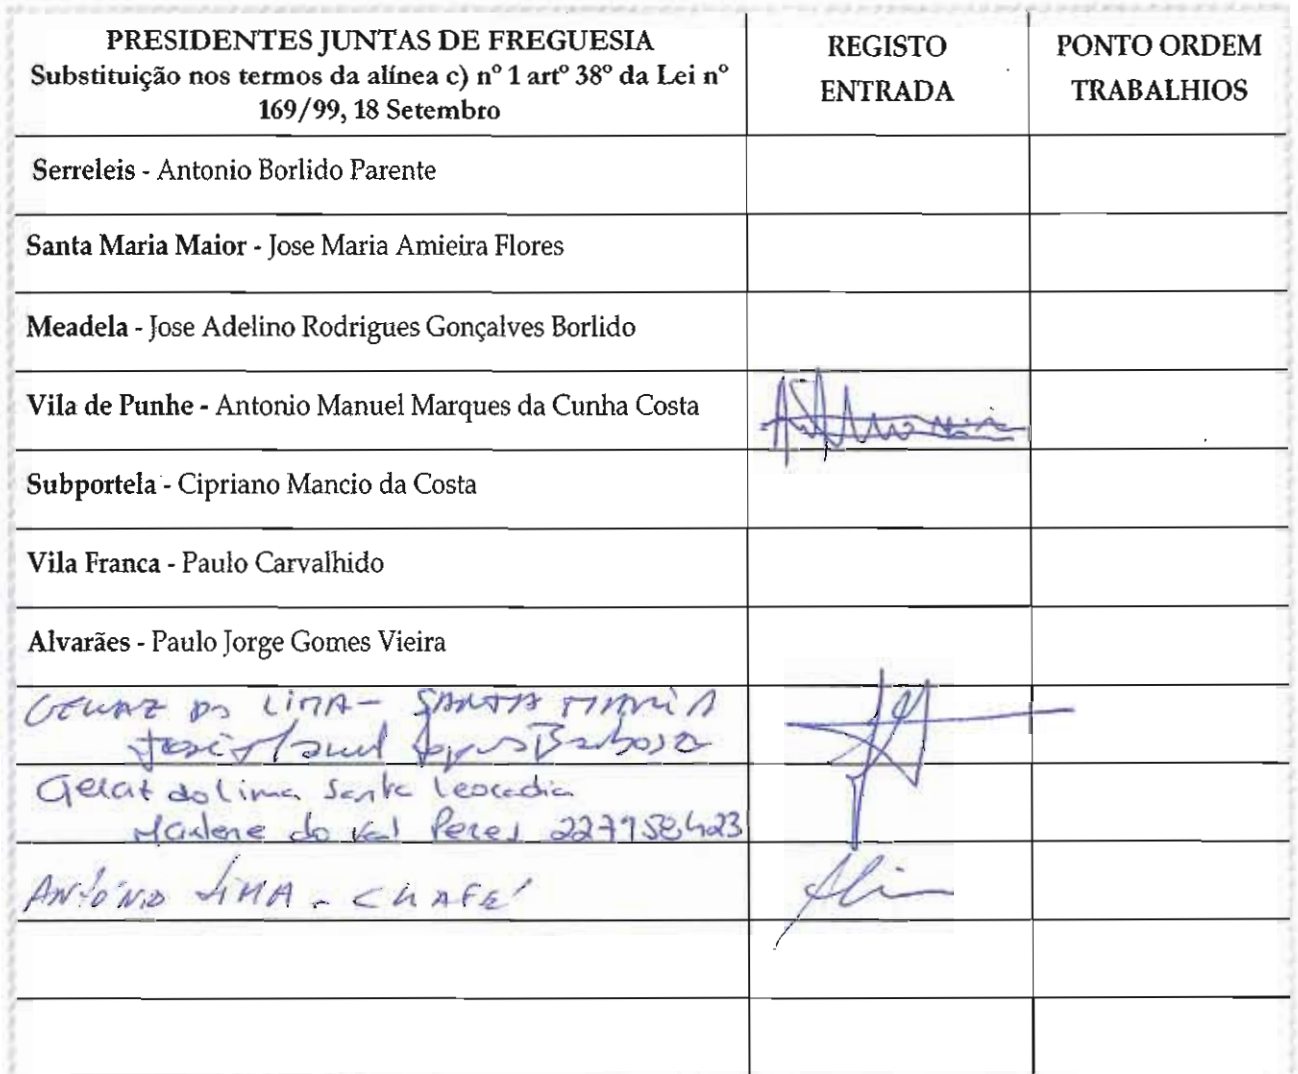 PRESIDENTES JUNTAS DE FREGUESIA
Substituição nos termos da alínea c) nº 1 artº 38º da Lei nº
169/99, 18 Setembro
REGISTO
ENTRADA
PONTO ORDEM
TRABALHIOS
Serreleis - Antonio Borlido Parente
Santa Maria Maior - Jose Maria Amieira Flores
Meadela - Jose Adelino Rodrigues Gonçalves Borlido
Vila de Punhe - Antonio Manuel Marques da Cunha Costa
Subportela - Cipriano Mancio da Costa
Vila Franca - Paulo Carvalhido
Alvarães - Paulo Jorge Gomes Vieira
LIMA - SANTA MARIA
Barbosa
Geraz do Lima Santa Leocadia
Marlene do Val Peres 227958423
ANTÓNIO LIMA - CHAFÉ